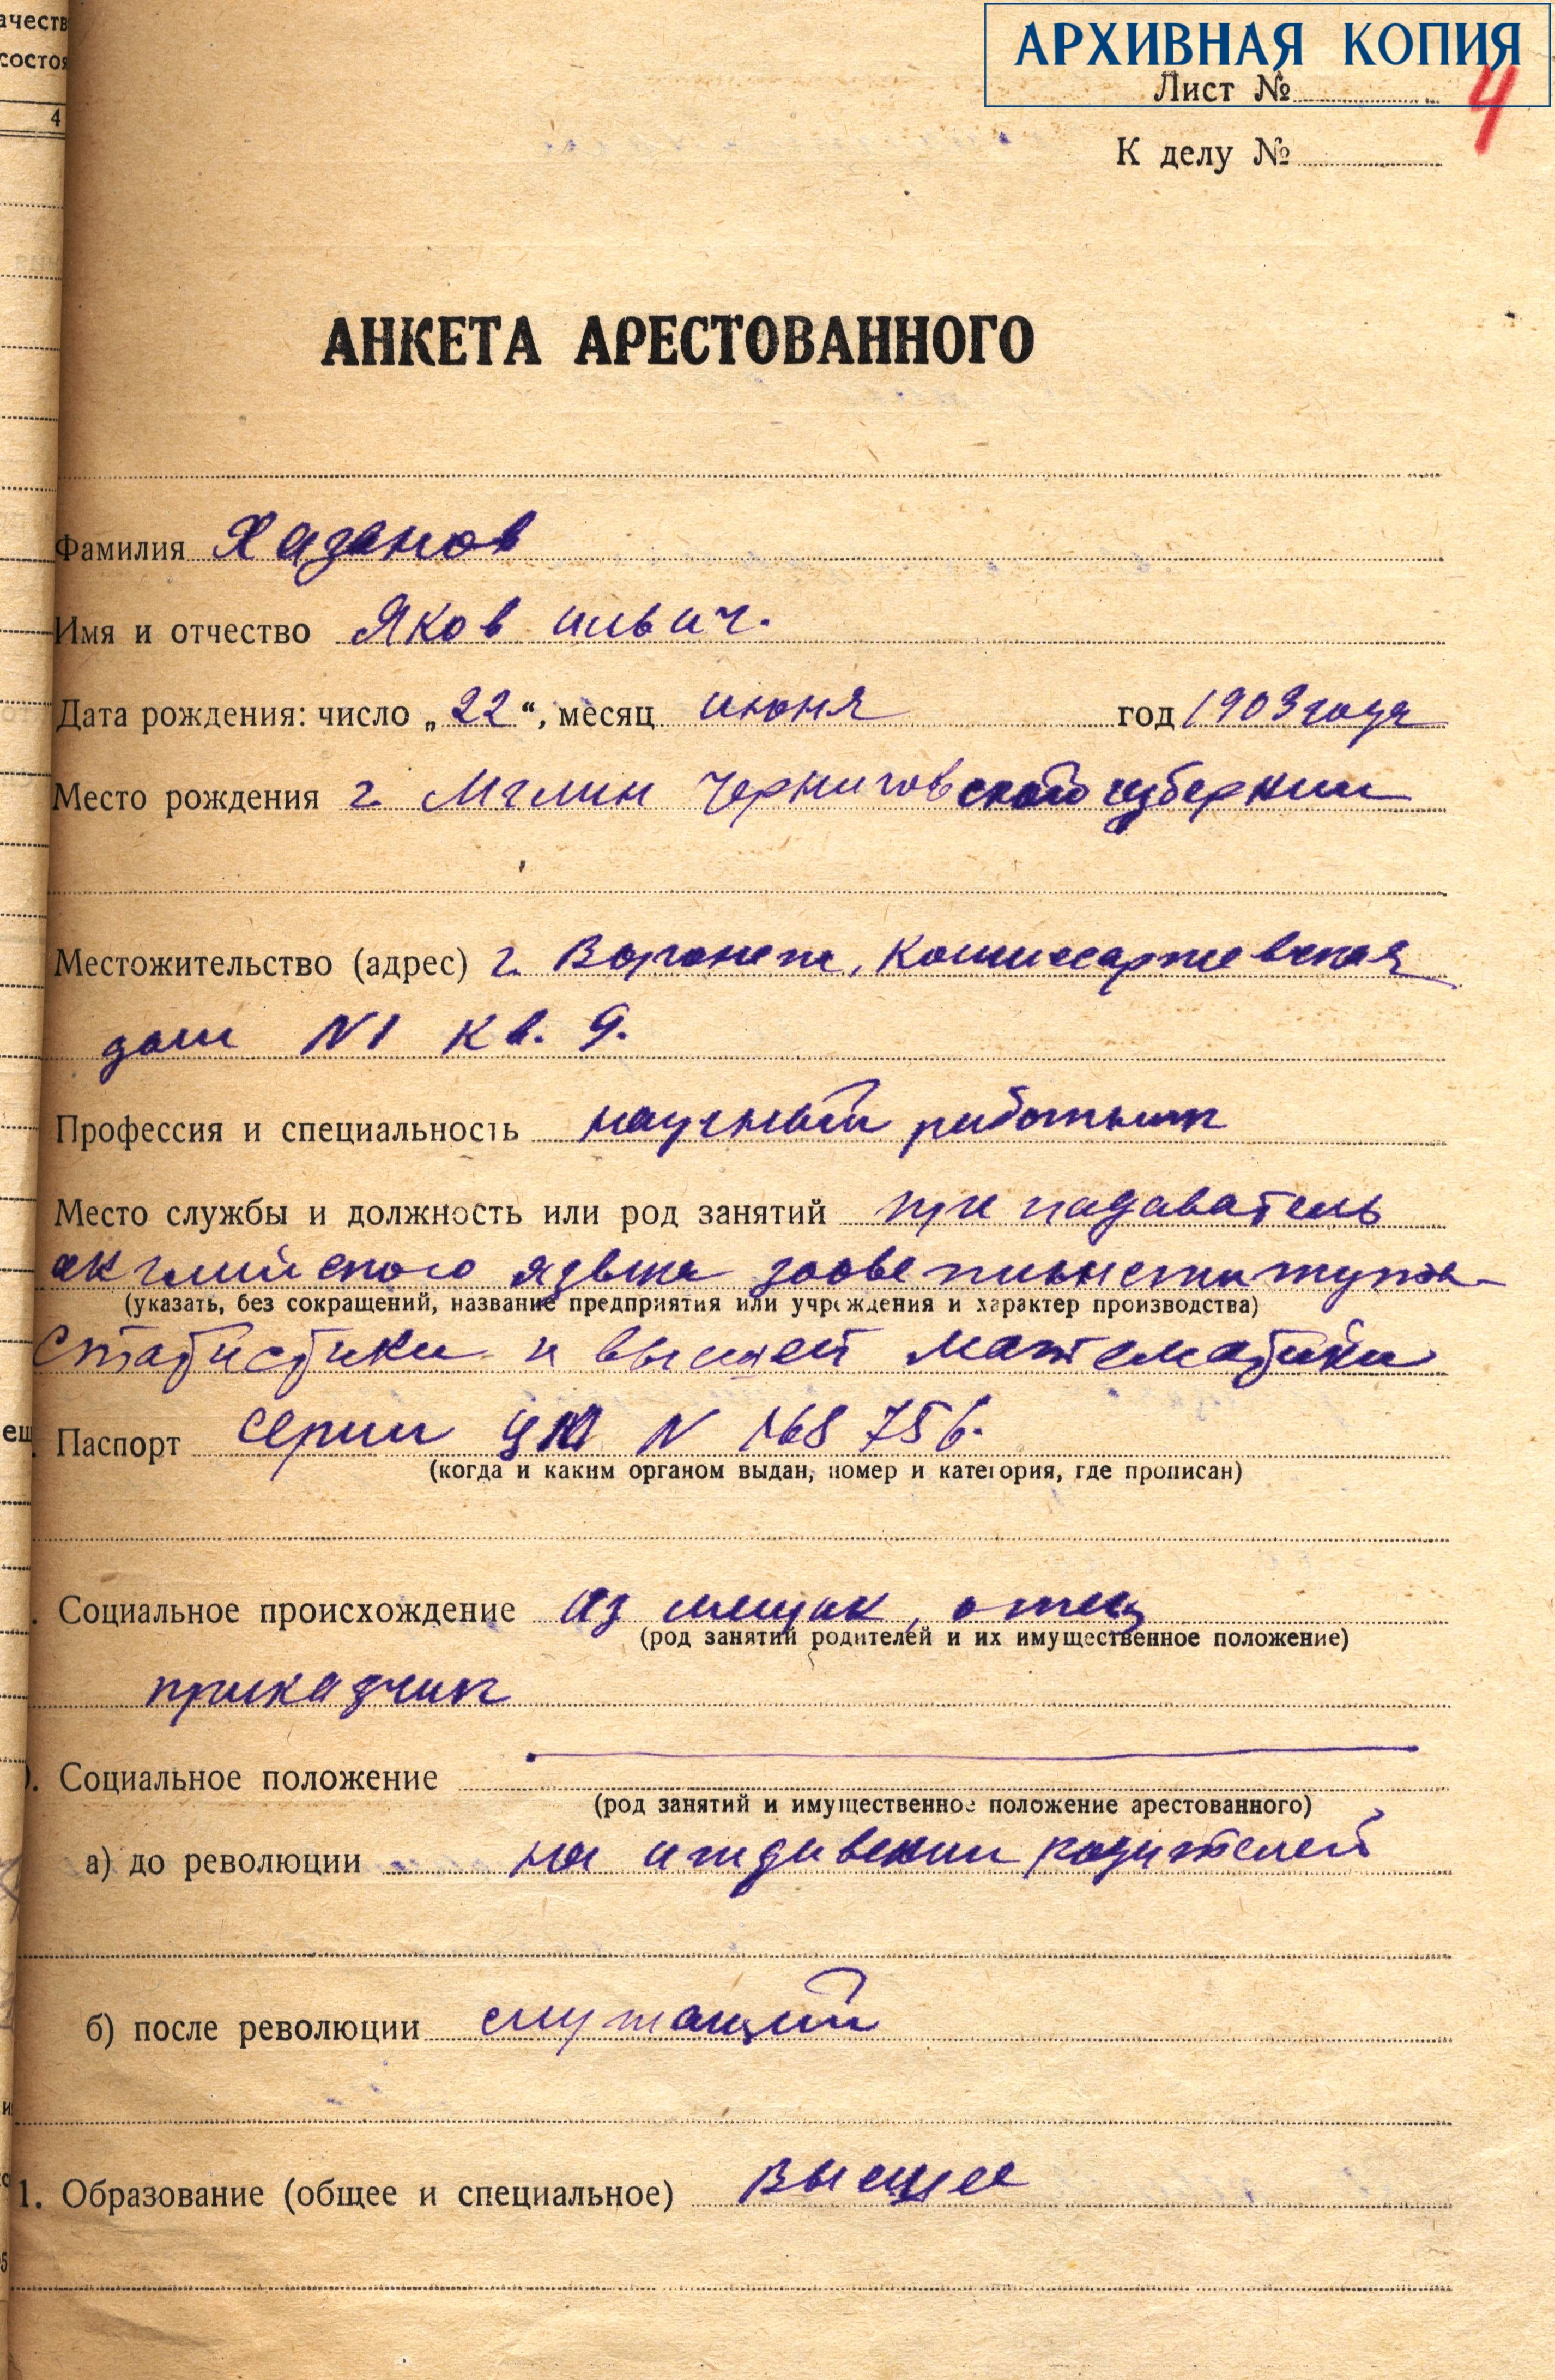 ачеств
состоя
4
АРХИВНАЯ КОПИЯ
Лист № 4
К делу №
АНКЕТА АРЕСТОВАННОГО
Фамилия Хазанов
Имя и отчество Яков ильич.
Дата рождения: число „22“, месяц июня год 1903 года
Место рождения г. Мглин Черниговской губернии
Местожительство (адрес) г. Воронеж, Комиссаржевская
дом N1 кв. 9.
Профессия и специальность научный работник
Место службы и должность или род занятий преподаватель
английского языка зооветинститута
(указать, без сокращений, название предприятия или учреждения и характер производства)
Статистики и высшей математики
Паспорт серии N 168756.
(когда и каким органом выдан, номер и категория, где прописан)
ещ
. Социальное происхождение из мещан, отец
(род занятий родителей и их имущественное положение)
приказчик
). Социальное положение
(род занятий и имущественное положение арестованного)
а) до революции на иждивении родителей
б) после революции служащий
1. Образование (общее и специальное) Высшее